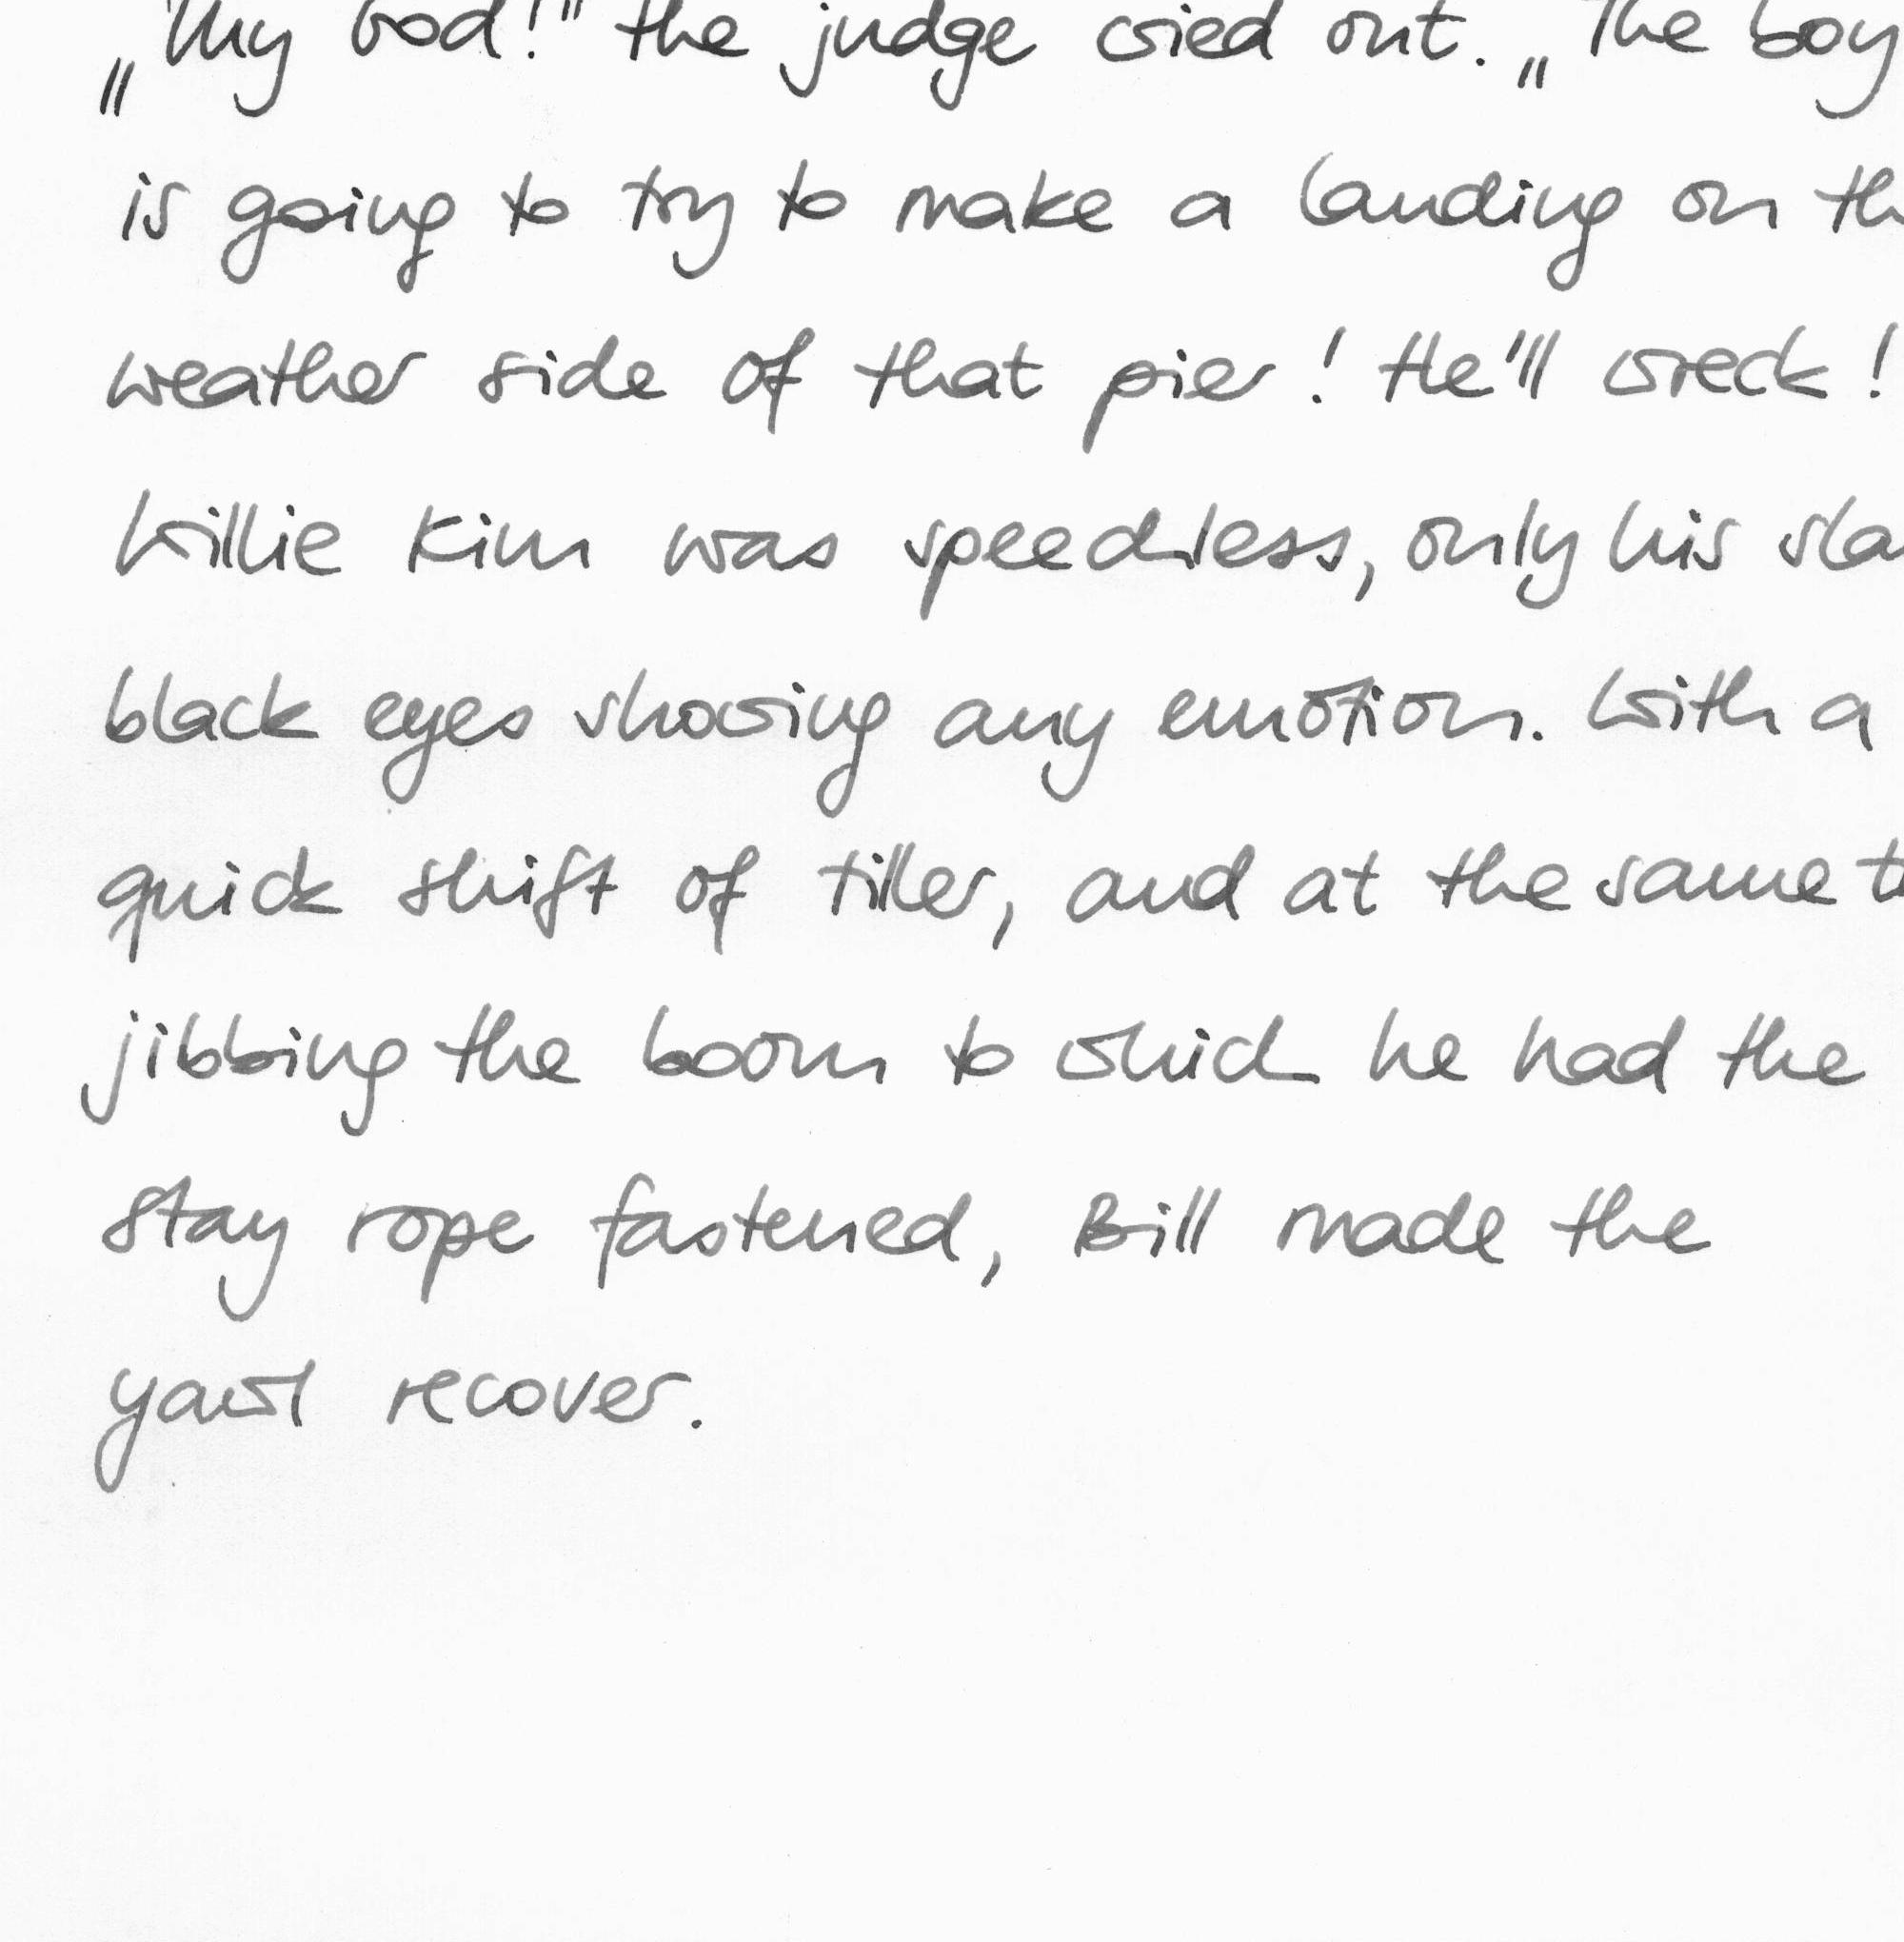 „My God!" the judge cried out. „The boy
is going to try to make a landing on
weather side of that pier! He'll wreck!
Willie Kim was speechless, only his
black eyes showing any emotion. With a
quick shift of tiller, and at the same
jibbing the boom to which he had the
stay rope fastened, Bill made the
yawl recover.